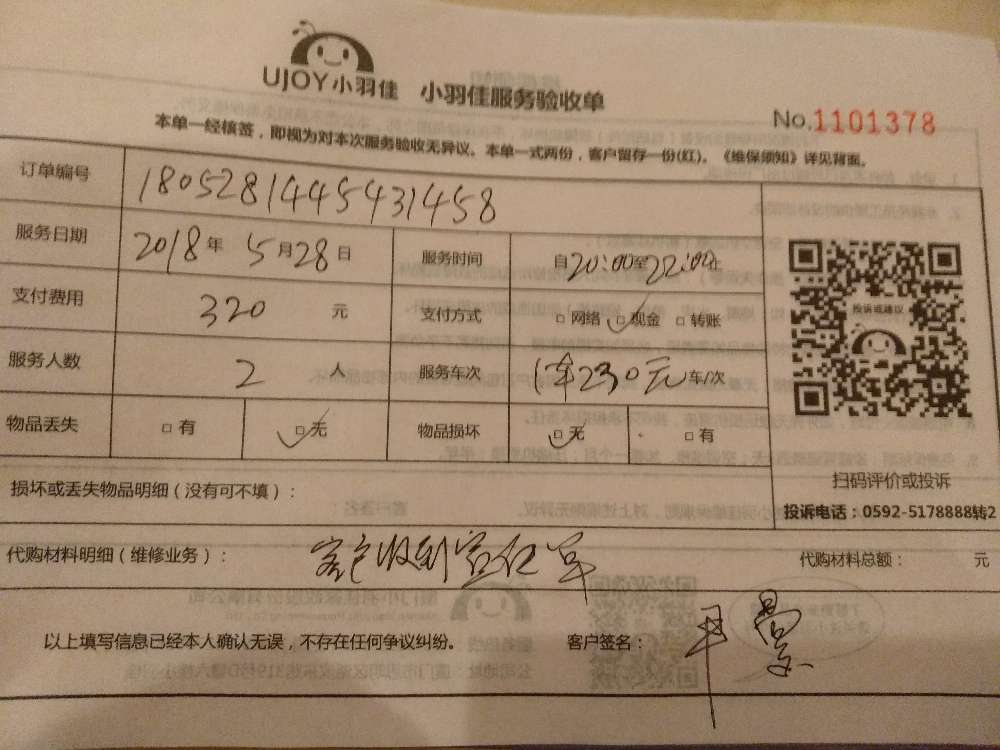 UJOY小羽佳 小羽佳服务验收单
No.1101378
本单一经核签，即视为对本次服务验收无异议。本单一式两份，客户留存一份(红)。《维保须知》详见背面。
订单编号 180528144543 1458
服务日期 2018年 5月28日 服务时间 自20:00至22:00止
支付费用 320 元 支付方式 □网络 □现金 □转账
投诉或建议
服务人数 2 人 服务车次 1车230元车/次
物品丢失 □有 □无 物品损坏 □无 □有
扫码评价或投诉
损坏或丢失物品明细（没有可不填）：
投诉电话：0592-5178888转2
代购材料明细（维修业务）： 客户收到宣红单 代购材料总额： 元
以上填写信息已经本人确认无误，不存在任何争议纠纷。 客户签名：